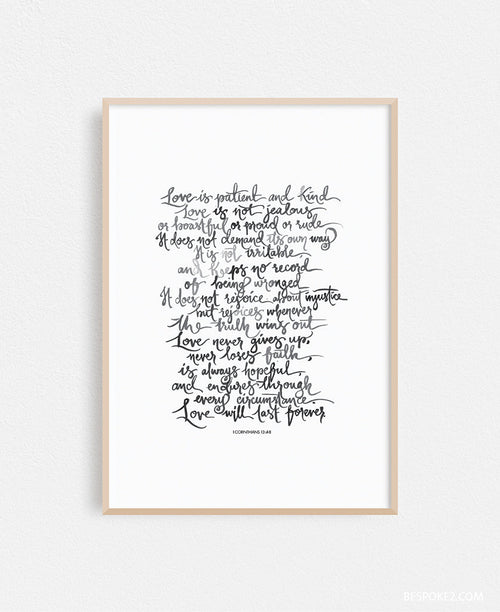 Love is patient and kind
Love is not jealous
or boastful or proud or rude
It does not demand its own way
It is not irritable
and keeps no record
of being wronged
It does not rejoice about injustice
but rejoices whenever
the truth wins out
Love never gives up,
never loses faith,
is always hopeful,
and endures through
every circumstance.
Love will last forever
1 CORINTHIANS 13:4-8
BESPOKE2.COM